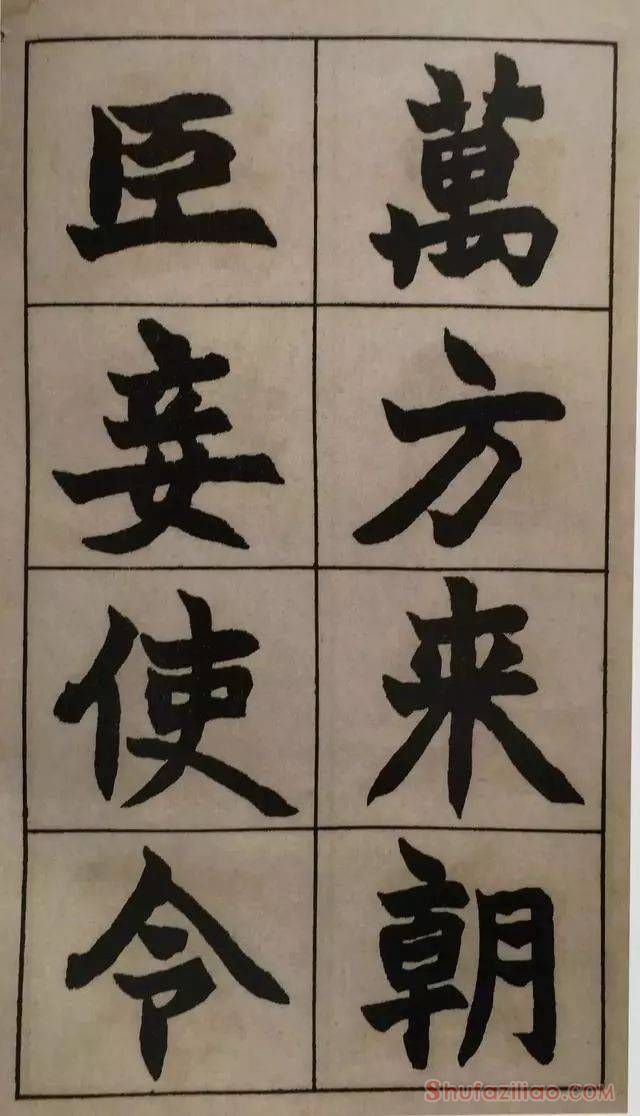 萬方来朝
臣妾使令
Shufaziliao.COM